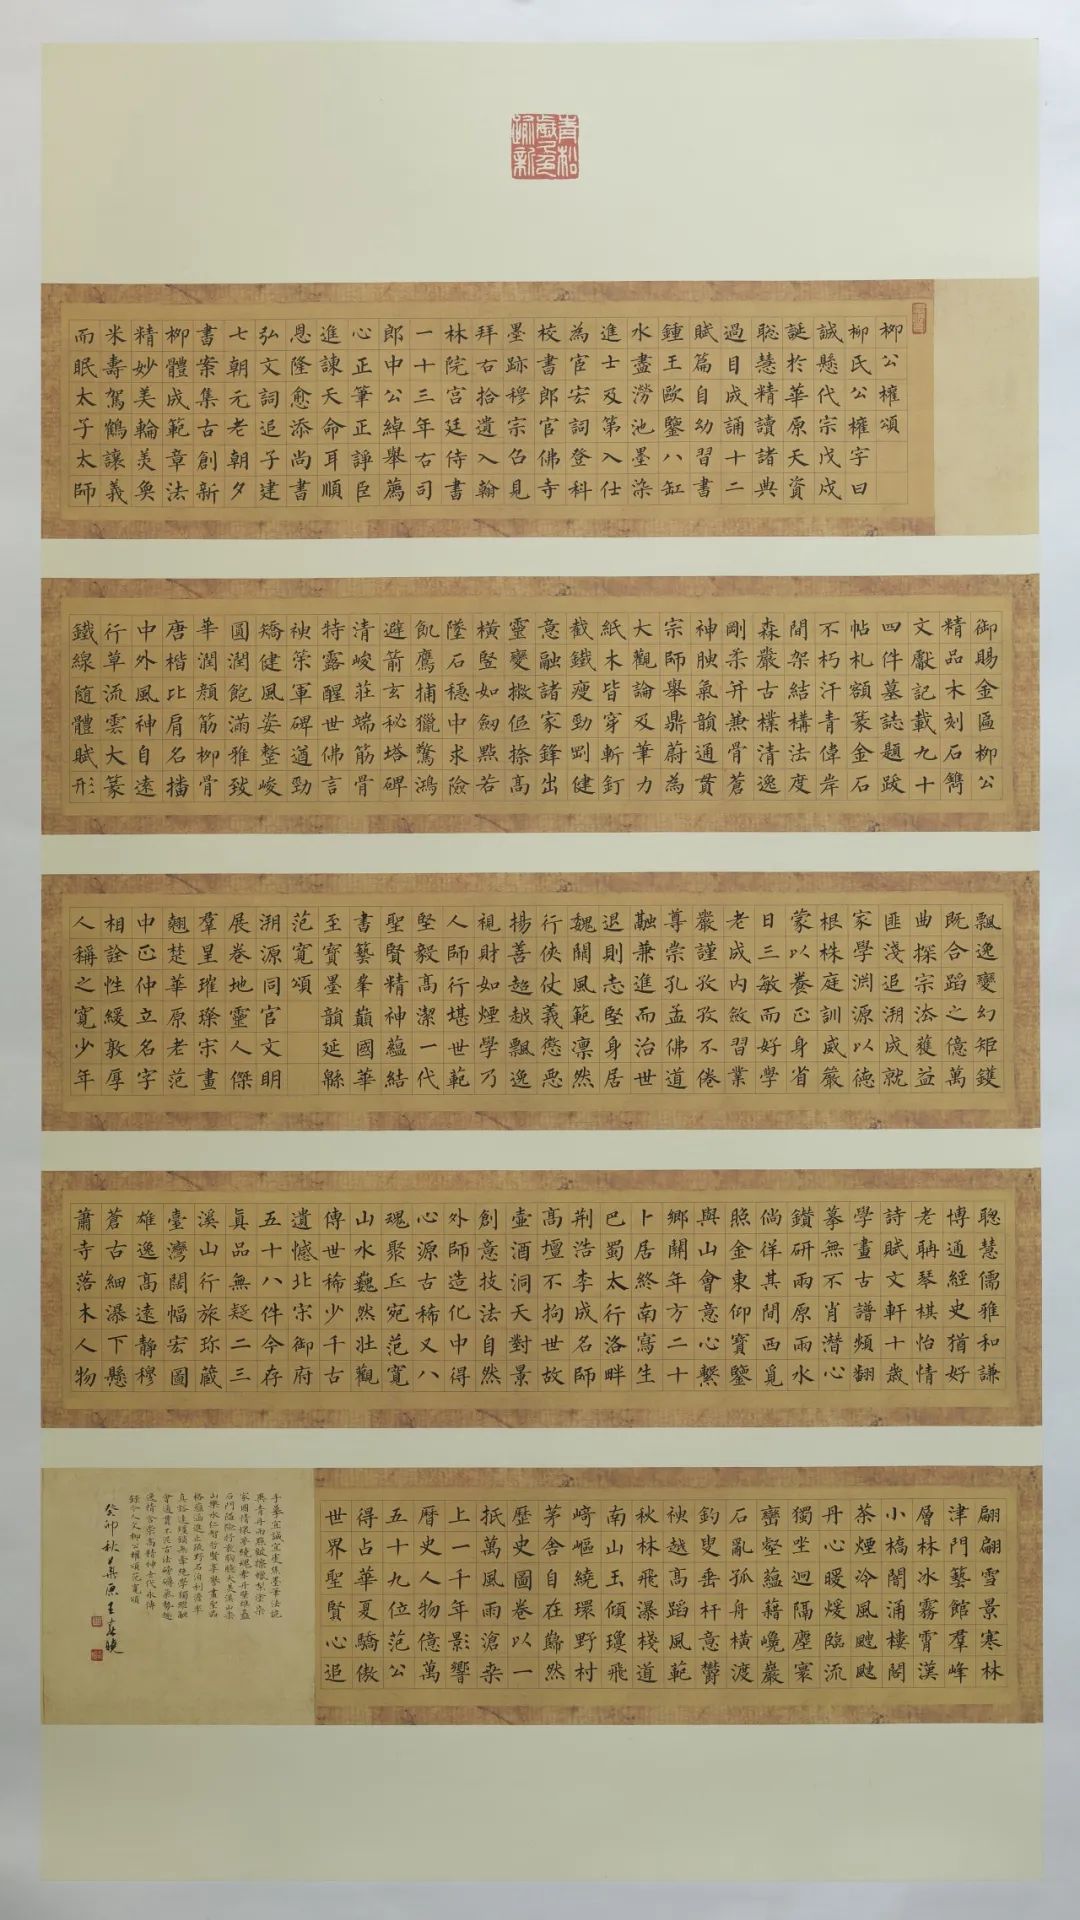 青松
歲久色
逾新
柳公權頌
柳氏公權字曰
誠懸代宗戊戌
誕於華原天資
聡慧精讀諸典
過目成誦十二
賦篇自幼習書
鍾王歐鑒八缸
水盡澇池墨染
進士及第入仕
為官宏詞登科
校書郎官佛寺
墨跡穆宗召見
拜右拾遺入翰
林院宮廷侍書
一十三年右司
郎中公綽舉薦
心正筆正諍臣
進諫天命耳順
恩隆愈添尚書
弘文詞追子建
七朝元老朝夕
書案集古創新
柳體成範章法
精妙美輪美奐
米壽駕鶴讓義
而眠太子太師
御賜金區柳公
精品木刻石雋
文獻記載九十
四件墓誌題跋
帖札額篆金石
不朽汗青偉岸
間架結構法度
森嚴古樸清逸
剛柔并兼骨蒼
神腴氣韻通貫
宗師舉鼎蔚為
大觀論及筆力
紙木皆穿斬釘
截鐵瘦勁剛健
意融諸家鋒出
靈變撇伛捺高
橫豎如劍點若
墜石穩中求險
飢鷹捕獵驚鴻
避箭玄秘塔碑
清峻莊端筋骨
特露醒世佛言
神策軍碑遒勁
矯健風姿整峻
圓潤飽滿雅致
華潤顏筋柳骨
唐楷比肩名播
中外風神自遠
行草流雲大篆
鐵線随體賦形
飄逸變幻矩鑊
既合蹈之億萬
曲探宗添獲益
匪淺追溯成就
家學淵源以德
根株庭訓威嚴
蒙以養正身省
日三敏而好學
老成内斂習業
嚴謹孜孜不倦
尊崇孔孟佛道
融兼進而治世
退則志堅身居
魏闕風範凛然
行俠仗義懲恶
揚善超越飄逸
視財如煙學乃
人師行堪世範
堅毅高潔一代
聖賢精神蘊結
書藝峯巔國華
至寶墨韻延緜
范寬頌
溯源同官文明
展卷地靈人傑
羣星璀璨宋畫
翹楚華原老范
中正仲立名字
相詮性緩敦厚
人稱之寬少年
聡慧儒雅和謙
博通經史猶好
老聃琴棋怡情
詩賦文軒十歲
學畫古譜頻翻
摹無不肖潛心
鑽研雨原雨水
倘佯其間西覓
照金東仰寶鑒
與山會意心繫
鄉關年方二十
卜居終南寫生
巴蜀太行洛畔
荆浩李成名師
高壇不拘世故
壷酒洞天對景
創意技法自然
外師造化中得
心源古稀又八
瑰聚丘宛范寬
山水巍然壯觀
傳世稀少千古
遺憾北宋御府
五十八件今存
真品無疑二三
溪山行旅珎藏
臺灣闊幅宏圖
雄逸高遠靜穆
蒼古細瀑下懸
蕭寺落木人物
翩翩雪景寒林
津門藝館羣峰
層林冰霧霄漢
小橋闇涌樓閣
茶煙泠風颼颼
丹心暖煖臨流
獨坐迥隔塵寰
巒壑蘊藉巉巖
石亂孤舟橫渡
釣叟垂杆意欝
袂越高蹈風範
秋林飛瀑棧道
南山玉傾瓊飛
﨑嶇繞環野村
茅舍自在歸然
歷史圖卷以一
抵萬風雨滄桒
上一千年影響
曆史人物億萬
五十九位范公
得占華夏驕傲
世界聖賢心追